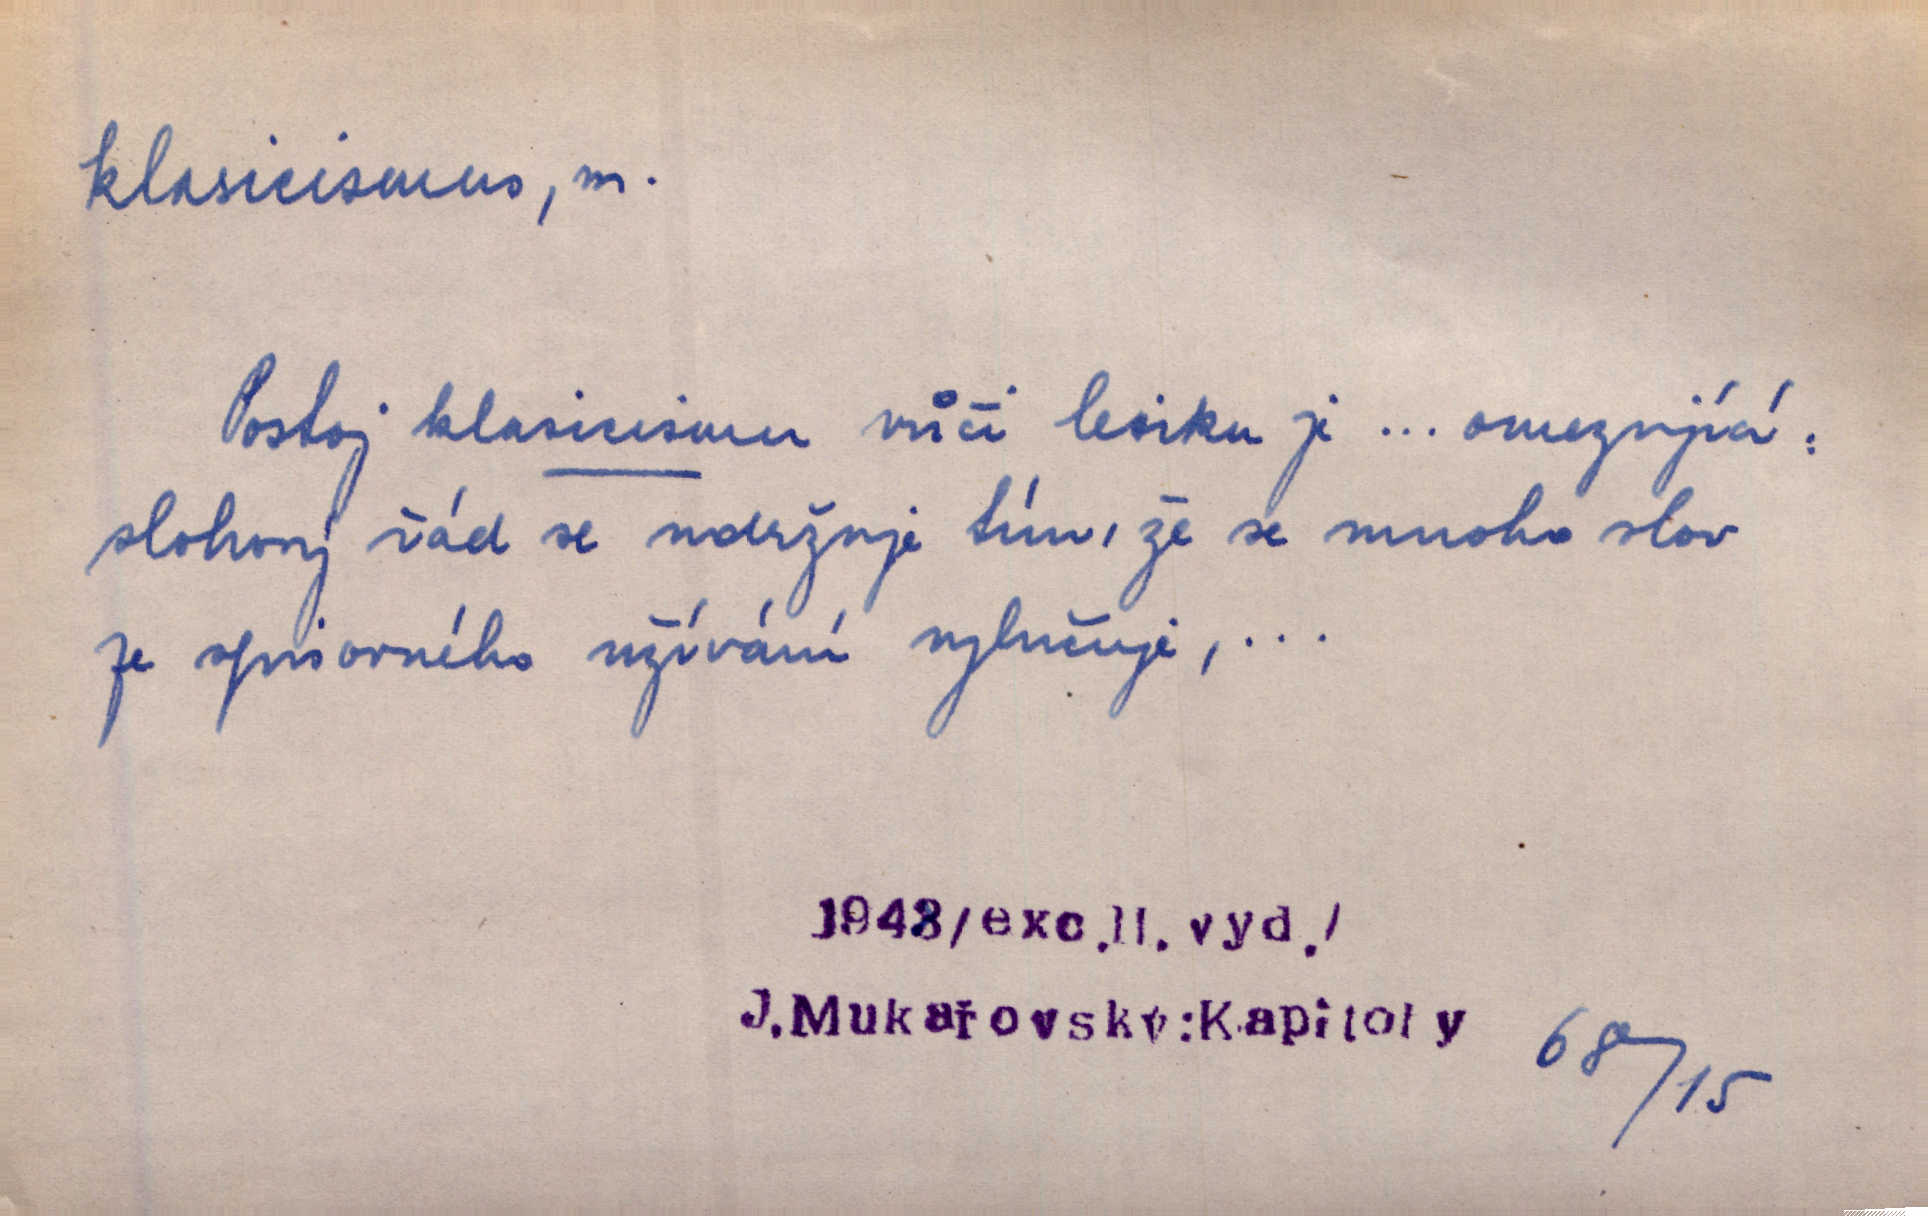 klasicismus, m.
Postoj klasicismu vůči lesiku je ... omezující:
slohový řád se udržuje tím, že se mnoho slov
ze spisovného užívání vylučuje, ...
1948/exc.II.vyd./
J.Mukařovský:Kapitoly
68/15